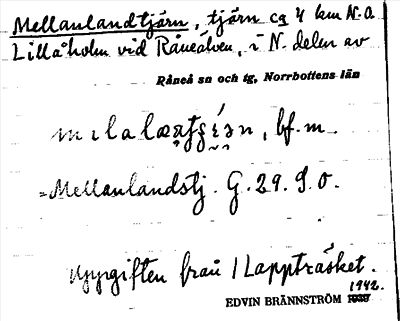 Mellanlandtjärn, tjärn ca 4 km N.O.
Lillåholm vid Råneälven, i N. delen av
Råneå sn och tg, Norrbottens län
bf. m.
=Mellanlandstj. G. 29. S. O.
Uppgiften från / Lappträsket.
1942.
EDVIN BRÄNNSTRÖM 1939